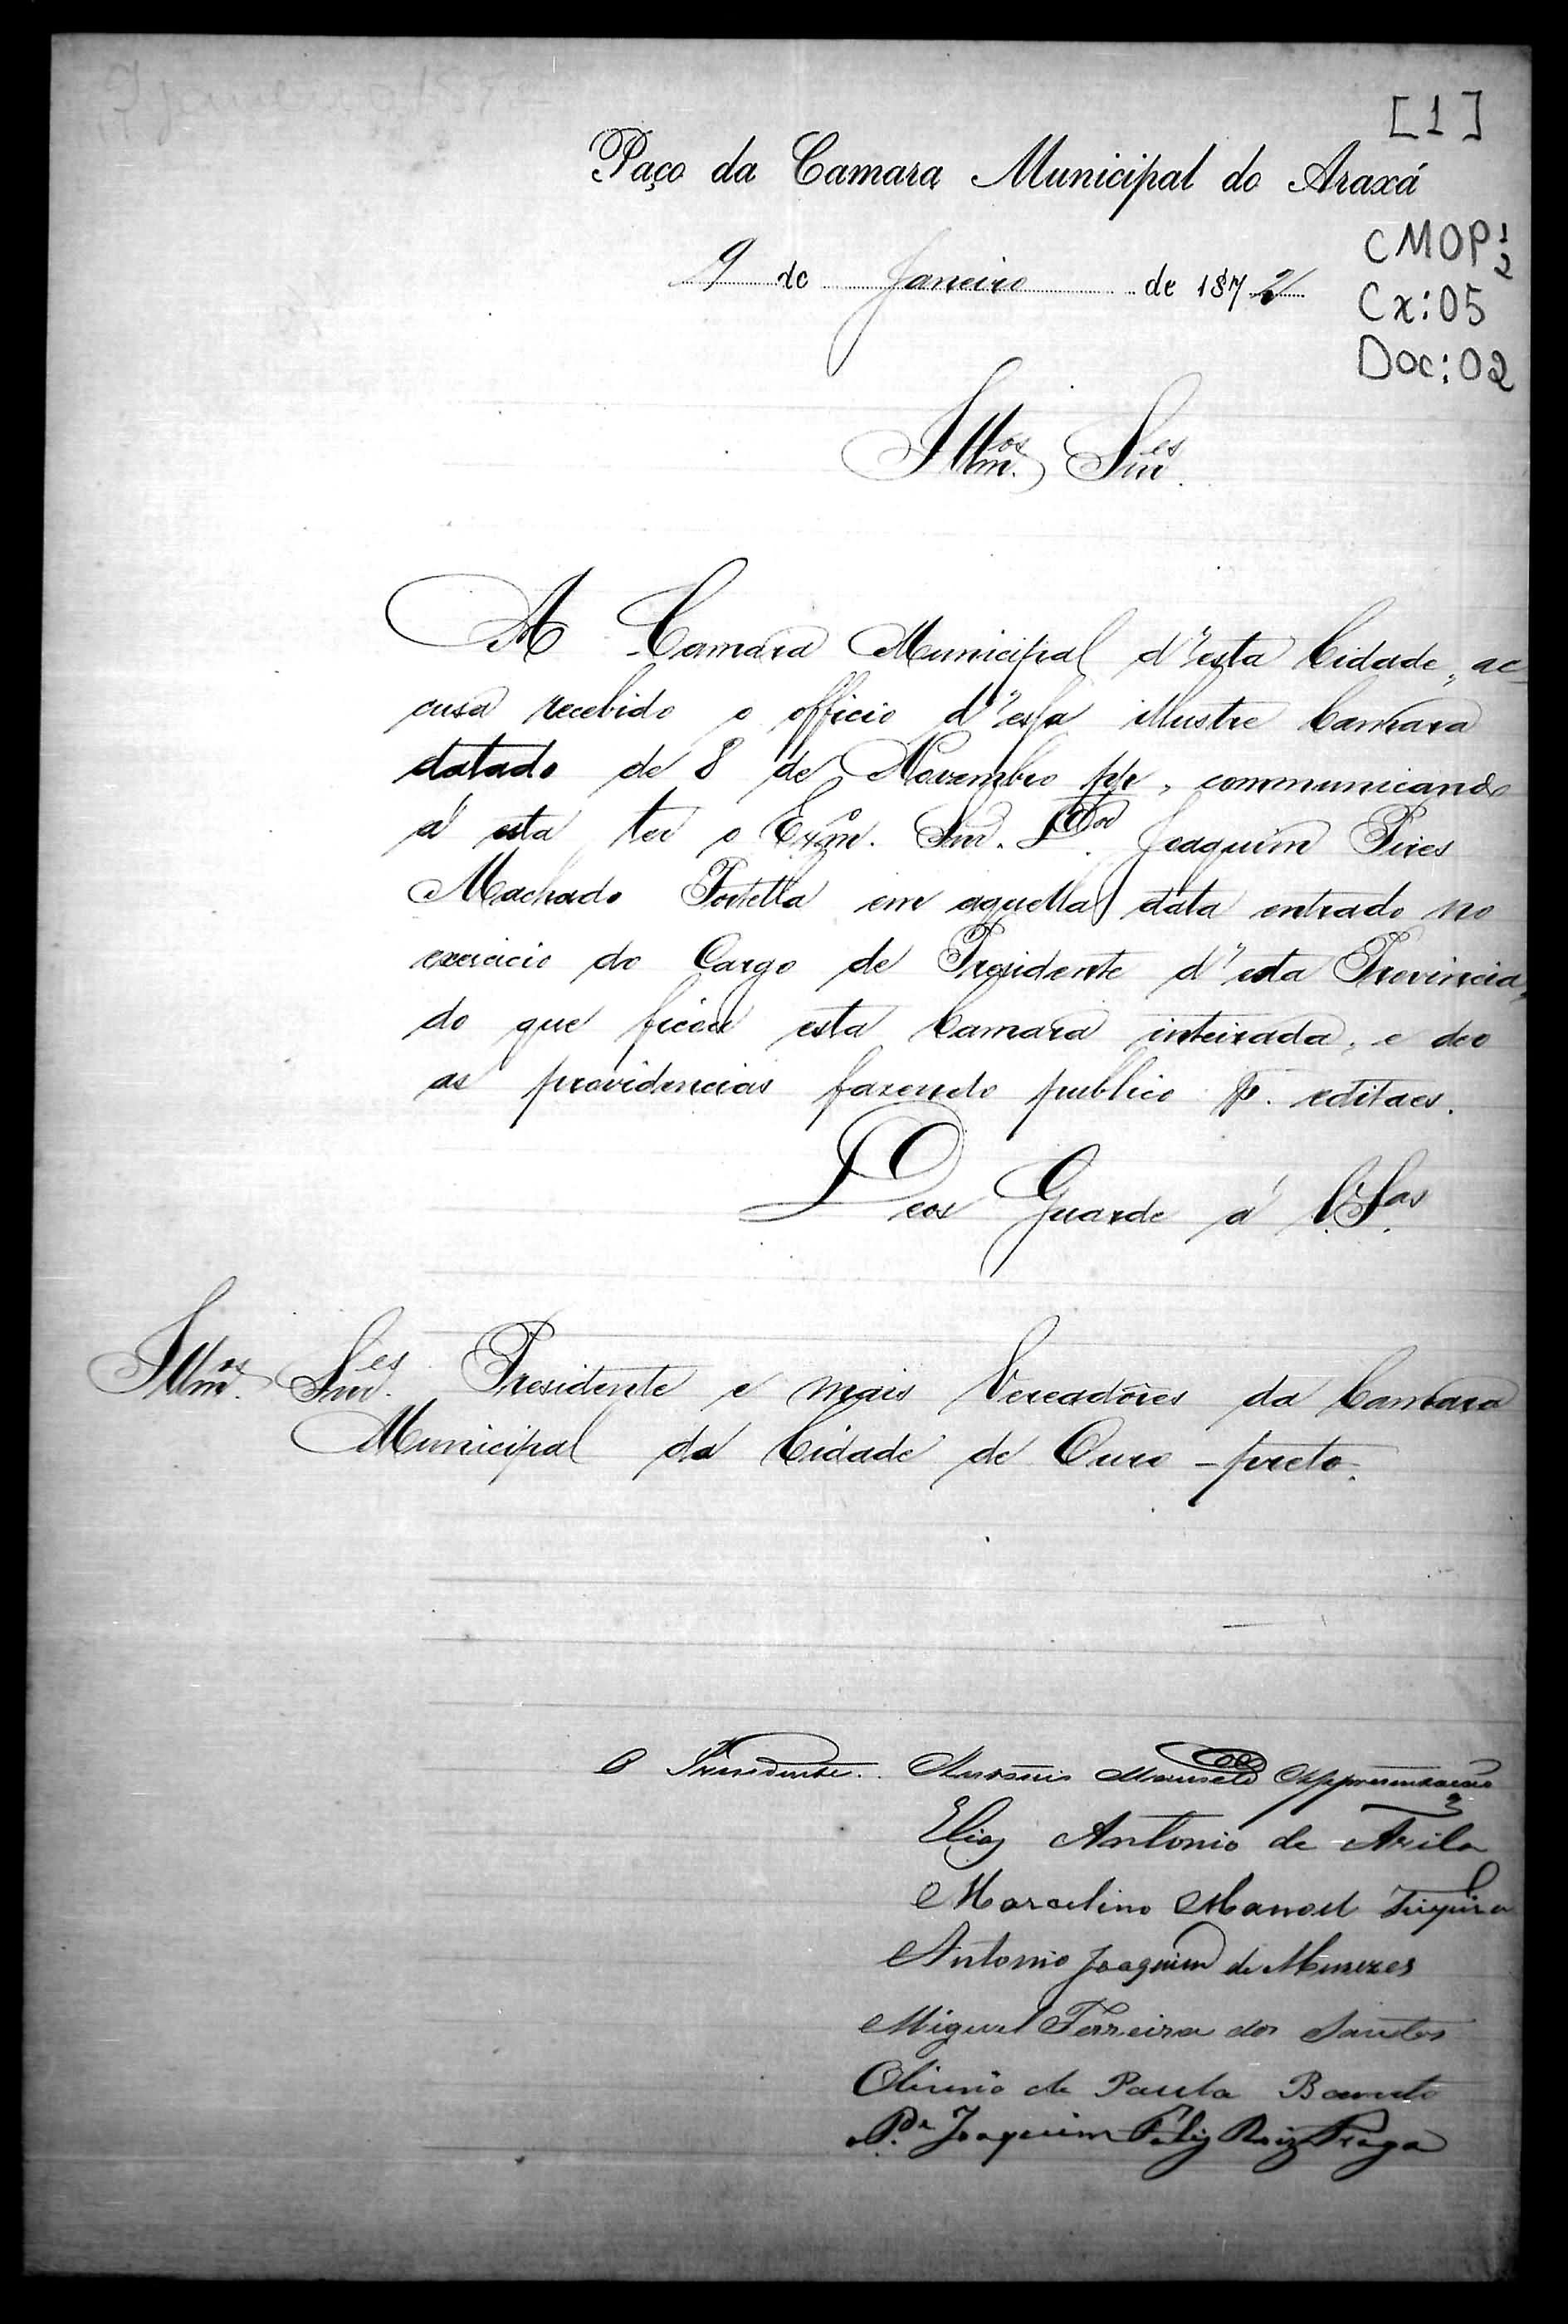 [1]
Paço da Camara Municipal do Araxá
9 de Janeiro de 1872
CMOP 1/2
Cx:05
Doc:02
Illmos. Snres.
A Camara Municipal d'esta Cidade, ac-
cusa recebido o officio d'essa illustre Camara
datado de 8 de Novembro pp, communicando
á esta ter o Exmo. Snr. Dor. Joaquim Pires
Machado Portella em aquella data entrado no
exercicio do Cargo de Presidente d'esta Provincia,
do que ficou esta Camara inteirada, e deo
as providencias fazendo publico p. editaes.
Deos Guarde á V.Sas.
Illmos. Snres. Presidente e mais Vereadores da Camara
Municipal da Cidade de Ouro-preto.
O Presidente. Antonio
Elias Antonio de Avila
Marcelino Manoel
Antonio Joaquim de Menezes
Miguel Ferreira dos Santos
de Paula
Pe. Joaquim Felix Roiz Fraga